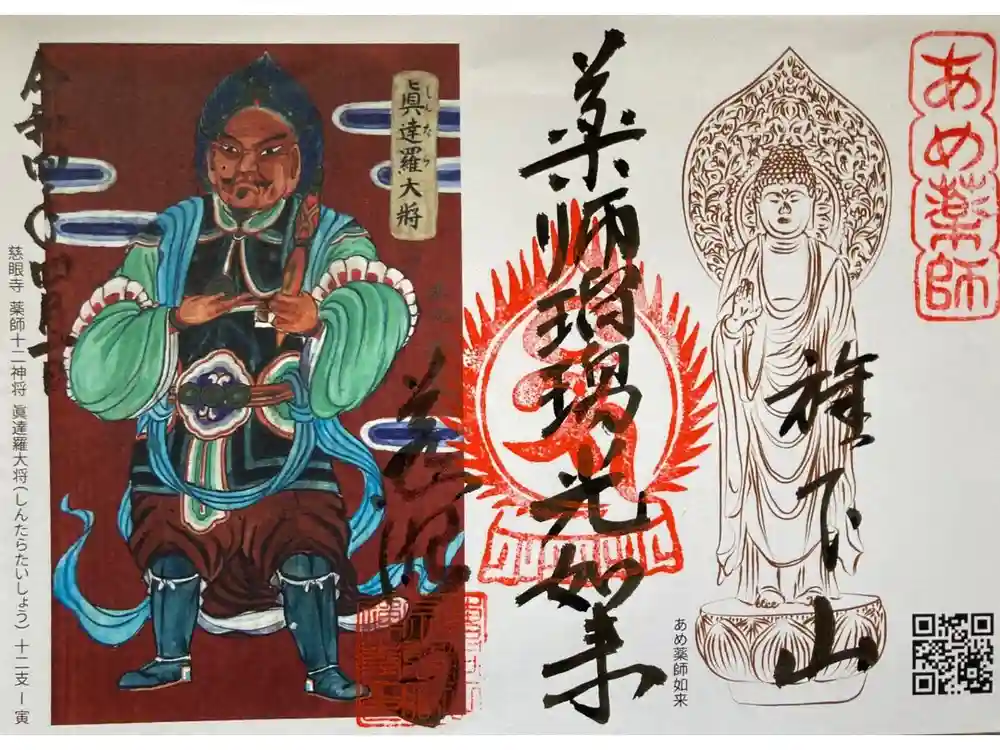 あめ薬師
雄下山
薬師瑠璃光如来
あめ薬師如来
眞達羅大将
しんたら
慈眼寺
慈眼寺 薬師十二神将 眞達羅大将(しんたらたいしょう) 十二支ー寅